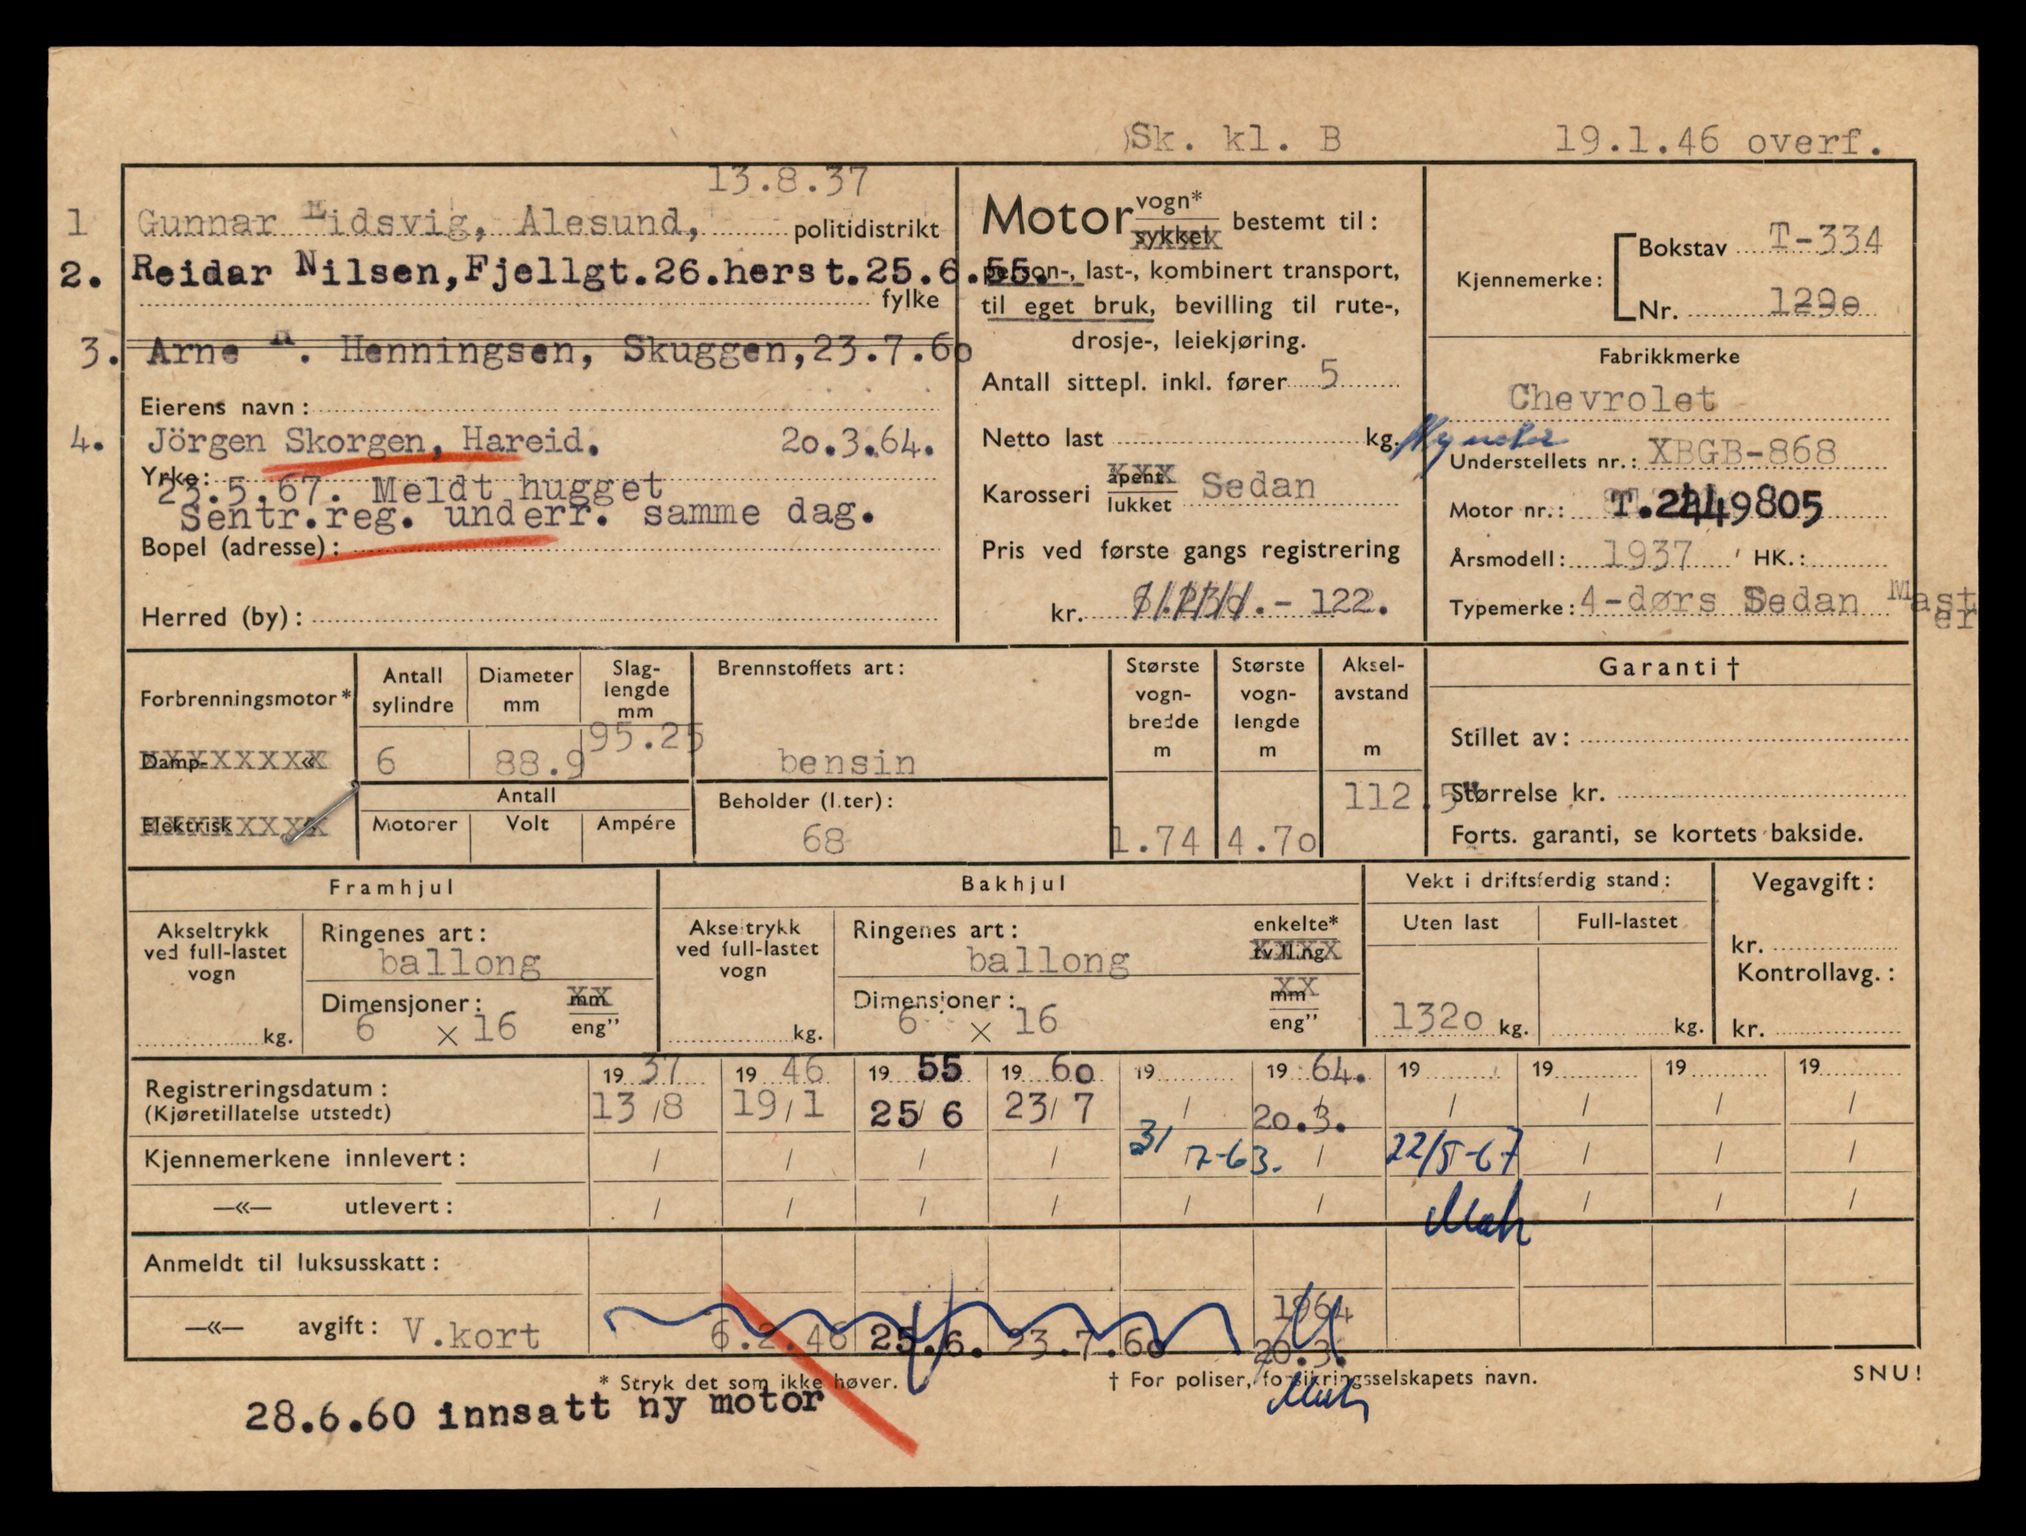 Sk. kl. B 19.1.46 overf.
13.8.37
1 Gunnar Eidsvig, Ålesund, politidistrikt
2. Reidar Nilsen, Fjellgt.26.herst.25.6.55.
fylke
3. Arne H. Henningsen, Skuggen, 23.7.60
Eierens navn:
4. Jörgen Skorgen, Hareid. 20.3.64.
Yrke:
23.5.67. Meldt hugget
Sentr.reg. underr. samme dag.
Bopel (adresse):
Herred (by):
Motor vogn* sykkel bestemt til:
person-, last-, kombinert transport,
til eget bruk, bevilling til rute-,
drosje-, leiekjøring.
Antall sittepl. inkl. fører 5
Netto last kg.
Karosseri åpent lukket Sedan
Pris ved første gangs registrering
kr. .- 122.
Kjennemerke: Bokstav T-334
Nr. 129e
Fabrikkmerke
Chevrolet
Understellets nr.: XBGB-868
Motor nr.: T.2449805
Årsmodell: 1937 HK.:
Typemerke: 4-dørs Sedan Master
Forbrenningsmotor*
Damp- «
Elektrisk «
Antall sylindre 6
Diameter mm 88.9
Slaglengde mm 95.25
Antall
Motorer Volt Ampére
Brennstoffets art:
bensin
Beholder (l.ter):
68
Største vognbredde m 1.74
Største vognlengde m 4.70
Akselavstand m 112.5"
Garanti †
Stillet av:
Størrelse kr.
Forts. garanti, se kortets bakside.
Framhjul
Akseltrykk ved full-lastet vogn kg.
Ringenes art:
ballong
Dimensjoner: mm eng"
6 x 16
Bakhjul
Akseltrykk ved full-lastet vogn kg.
Ringenes art: enkelte* tvilling
ballong
Dimensjoner: mm eng"
6 x 16
Vekt i driftsferdig stand:
Uten last Full-lastet
1320 kg. kg.
Vegavgift:
kr.
Kontrollavg.:
kr.
19 37 19 46 19 55 19 60 19 19 64. 19 19 19 19
Registreringsdatum:
(Kjøretillatelse utstedt) 13/8 19/1 25/6 23/7 / 20.3. / / / /
Kjennemerkene innlevert: / / / / 31/7-63. / 22/5-67 / / /
—«— utlevert: / / / / / / / / /
Anmeldt til luksusskatt:
1964
—«— avgift: V.kort 6.2.46 25.6. 23.7.60 20.3.
* Stryk det som ikke høver. † For poliser, forsikringsselskapets navn. SNU!
28.6.60 innsatt ny motor